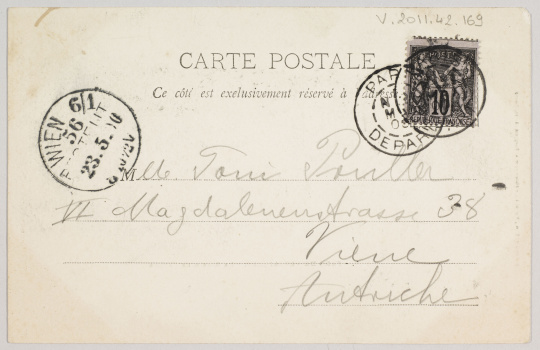 V.2011.42.169
CARTE POSTALE
Ce côté est exclusivement réservé à
PAR
DEPAR
10
WIEN 6/1
56
23.5.
Mlle Toni
VI Magdalenenstrasse 38
Viene
Autriche